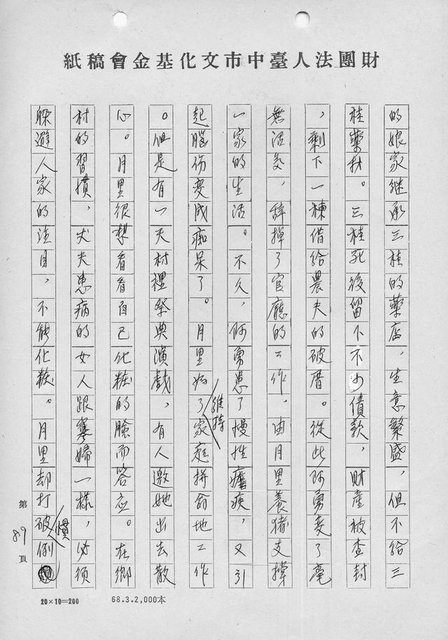 財團法人臺中市文化基金會稿紙
的娘家继承三桂的藥店,生意繁盛,但不给三
桂藥材。三桂死後留下不少債款,財產被查封
,剩下一棟借給農夫的破厝。從此阿勇变了毫
無活氣,辞掉了官廳的工作,由月里養猪支撑
一家的生活。不久,阿勇患了慢性瘧疾,又引
起腦伤变成痴呆了。月里為了維持家庭拼命地工作
。但是有一天村裡祭典演戲,有人邀她出去散
心。月里很想看看自己化粧的臉而答应。在鄉
村的習慣,丈夫患病的女人跟寡婦一樣,必須
躲避人家的注目,不能化粧。月里却打破慣例
第89頁
20×10=200 68.3.2,000本